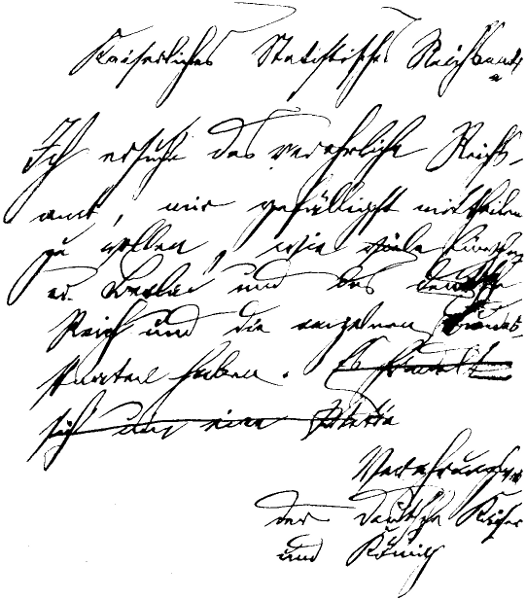 Kaiserliches Statistisches Reichsamt
Ich ersuche das verehrliche Reichs-
amt, mir gefälligst mitteilen
zu wollen, wie viele Einwohner
Berlin und das deutsche
Reich und die einzelnen Bundes-
staaten haben. Es handelt
sich um eine Wette
der deutsche Kaiser
und König